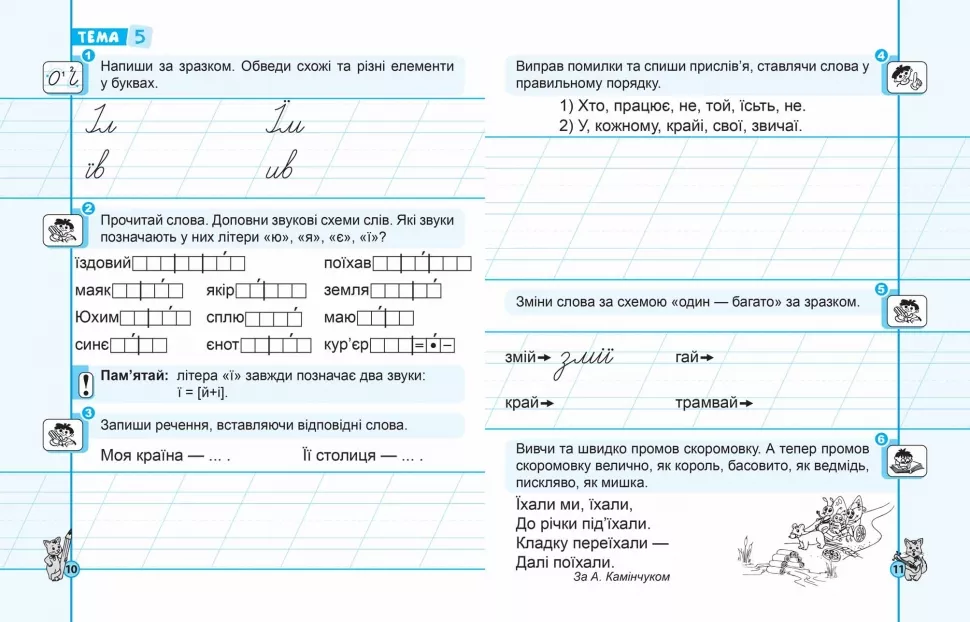 ТЕМА 5
1
Напиши за зразком. Обведи схожі та різні елементи
у буквах.
Їл
Їм
їв
ив
2
Прочитай слова. Доповни звукові схеми слів. Які звуки
позначають у них літери «ю», «я», «є», «ї»?
їздовий поїхав
маяк якір земля
Юхим сплю маю
синє єнот кур’єр = • –
! Пам’ятай: літера «ї» завжди позначає два звуки:
ї = [й+і].
3
Запиши речення, вставляючи відповідні слова.
Моя країна — ... . Її столиця — ... .
10
4
Виправ помилки та спиши прислів’я, ставлячи слова у
правильному порядку.
1) Хто, працює, не, той, їсьть, не.
2) У, кожному, крайі, свої, звичаї.
5
Зміни слова за схемою «один — багато» за зразком.
змій→ змії гай→
край→ трамвай→
6
Вивчи та швидко промов скоромовку. А тепер промов
скоромовку велично, як король, басовито, як ведмідь,
пискляво, як мишка.
Їхали ми, їхали,
До річки під’їхали.
Кладку переїхали —
Далі поїхали.
За А. Камінчуком
11